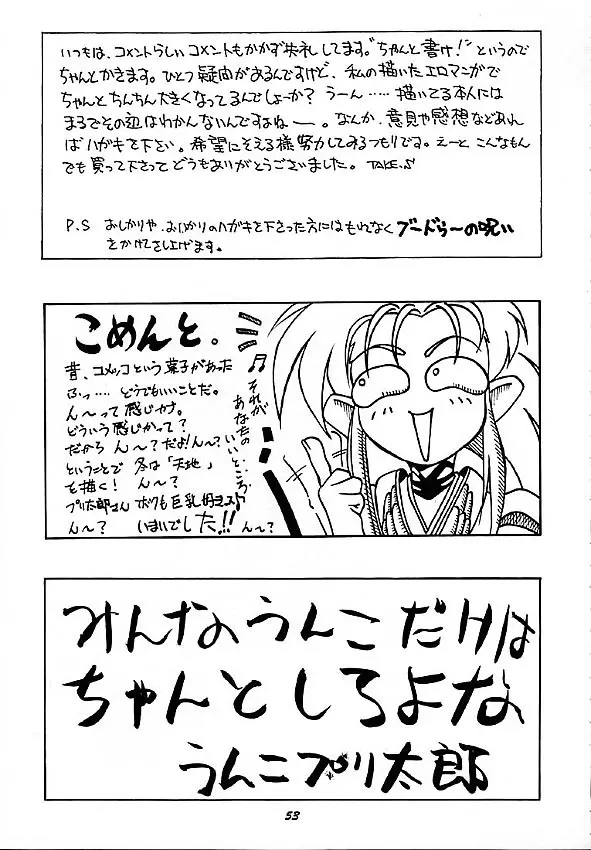 いつもは、コメントらしいコメントもかかず失礼してます。"ちゃんと書け!"というので
ちゃんとかきます。ひとつ疑問があるんですけど、私の描いたエロマンガで
ちゃんとちんちん大きくなってるんでしょーか? うーん……描いてる本人には
まるでその辺はわかんないんですよねー。なんか、意見や感想などあれ
ばハガキを下さい。希望にそえる様努力してみるつもりです。えーと こんなもん
でも買って下さって どうもありがとうございました。 TAKE.S
P.S おしかりや、おいかりのハガキを下さった方にはもれなくブードゥーの呪い
をかけてさし上げます。
こめんと。
昔、コメッコという菓子があった
ふっ…… どうでもいいことだ。
ん〜って感じかな。
どういう感じかって?
だから ん〜?だよ!ん〜?
ということで 冬は「天地」
を描く! ん〜?
プリ太郎さん ボクも巨乳好き
ん〜? いまいでした!! ん〜?
♫それが
あなたの
いいところ
みんなうんこだけは
ちゃんとしろよな
うんこプリ太郎
53